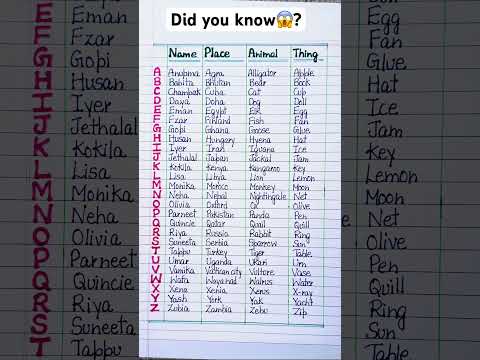 Did you know😱?
Name Place Animal Thing
A Anupma Agra Alligator Apple
B Babita Bhutan Bear Book
C Champak Cuba Cat Cup
D Daya Doha Dog Doll
E Eman Egypt Elk Egg
F Fzar Finland Fish Fan
G Gopi Ghana Goose Glue
H Husan Hungary Hyena Hat
I Iyer Iran Iguana Ice
J Jethalal Japan Jackal Jam
K Kokila Kenya Kangaroo Key
L Lisa Libya Lion Lemon
M Monika Moroco Monkey Moon
N Neha Nepal Nightingale Net
O Olivia Oxford Ox Olive
P Parneet Pakistan Panda Pen
Q Quincie Qatar Quail Quill
R Riya Russia Rabbit Ring
S Suneeta Serbia Sparrow Sun
T Tappu Turkey Tiger Table
U Umar Uganda Ukari Urn
V Vamika Vatican city Vulture Vase
W Wafa Wayanad Walrus Water
X Xena Xenia Xerus X-ray
Y Yash York Yak Yacht
Z Zobia Zambia Zebu Zip
E Eman
F Fzar
G Gopi
H Husan
I Iyer
J Jethalal
K Kokila
L Lisa
M Monika
N Neha
O Olivia
P Parneet
Q Quincie
R Riya
S Suneeta
T Tappu
Egg
Fan
Glue
Hat
Ice
Jam
Key
Lemon
Moon
Net
Olive
Pen
Quill
Ring
Sun
Table